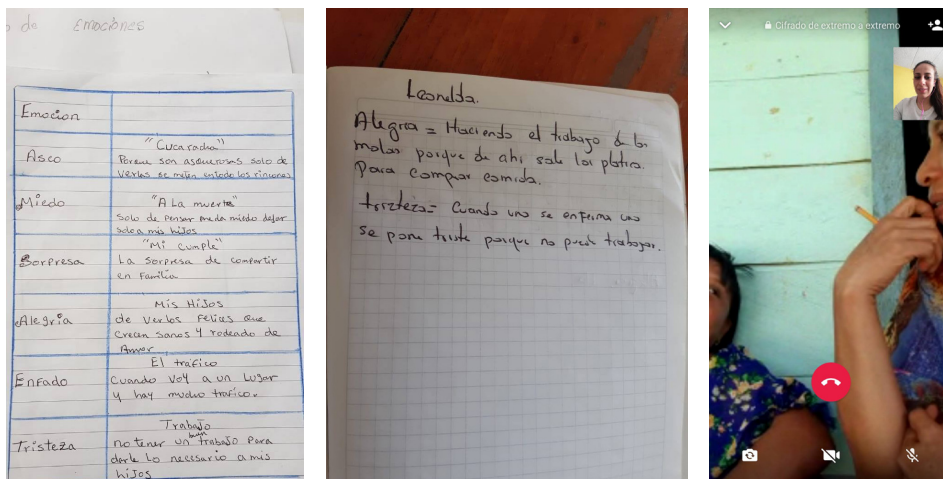 o de Emociones
Emoción
Asco
"Cucaracha"
Porque son asquerosas solo de
verlas se meten en todo los rincones
Miedo
"A La muerte"
Solo de Pensar me da miedo dejar
solo a mis hijos
Sorpresa
"Mi cumple"
La sorpresa de compartir
en familia
Alegría
Mis Hijos
de verlos Felices que
crecen sanos y rodeado de
Amor
Enfado
El tráfico
Cuando voy a un Lugar
y hay mucho trafico.
Tristeza
Trabajo
no tener un buen trabajo para
darle lo necesario a mis
hijos
Leonelda.
Alegria = Haciendo el trabajo de las
molas porque de ahi sale los platica.
Para comprar comida.
tristeza = Cuando uno se enferma uno
se pone triste porque no puede trabajar.
Cifrado de extremo a extremo